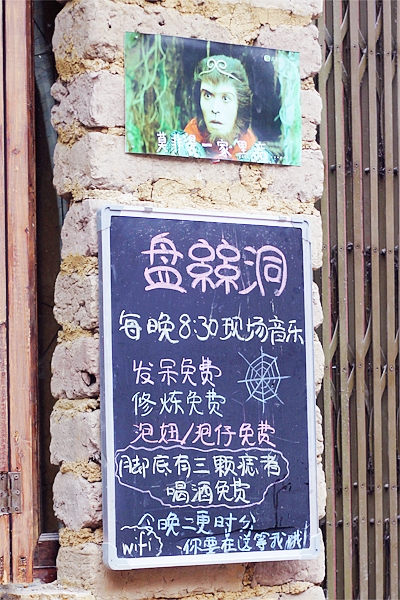 莫非是一家黑店...
盘絲洞
每晚8:30现场音乐
发呆免费
修炼免费
泡妞/泡仔免费
脚底有三颗痣者
喝酒免费
～今晚二更时分
wifi 你要在这等我哦!